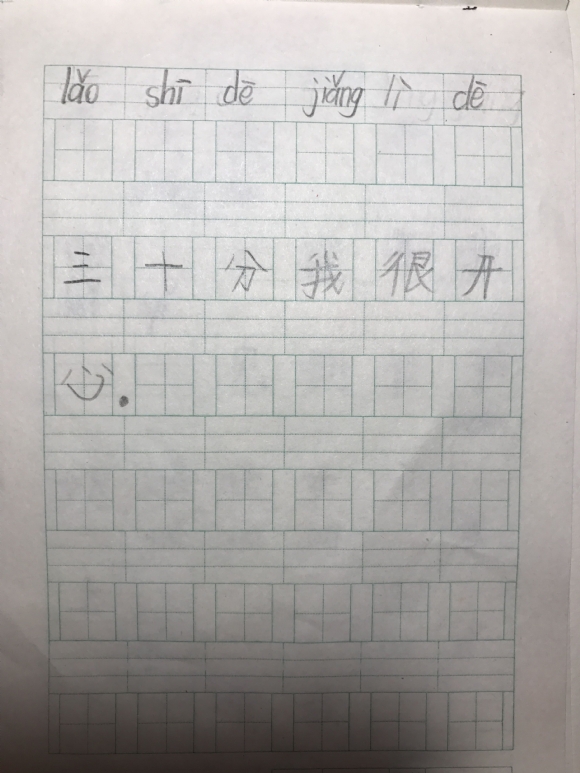 lǎo shī dē jiǎng lì dē
三十分我很开
心.